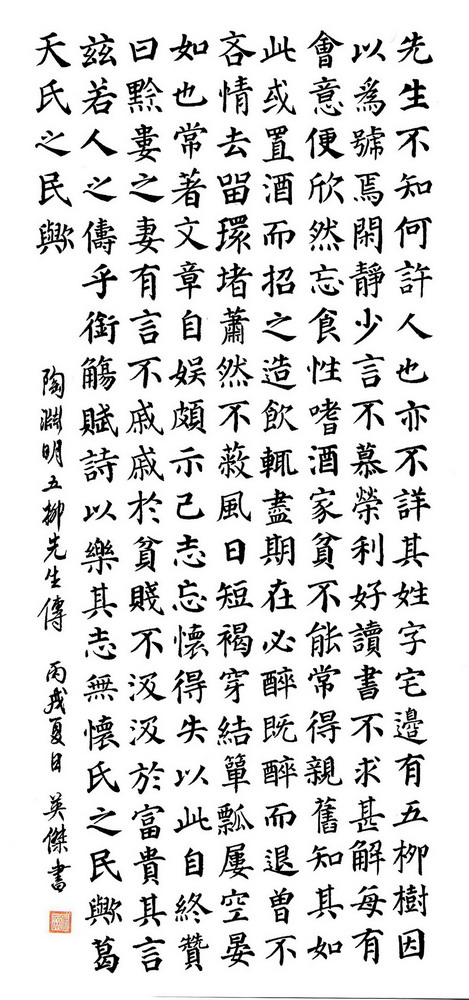 先生不知何許人也亦不詳其姓字宅邊有五柳樹因
以爲號焉閑靜少言不慕榮利好讀書不求甚解每有
會意便欣然忘食性嗜酒家貧不能常得親舊知其如
此或置酒而招之造飲輒盡期在必醉既醉而退曾不
吝情去留環堵蕭然不蔽風日短褐穿結簞瓢屢空晏
如也常著文章自娛頗示己志忘懷得失以此自終贊
曰黔婁之妻有言不戚戚於貧賤不汲汲於富貴其言
茲若人之儔乎銜觴賦詩以樂其志無懷氏之民歟葛
天氏之民歟
陶淵明五柳先生傳 丙戌夏日 英傑書